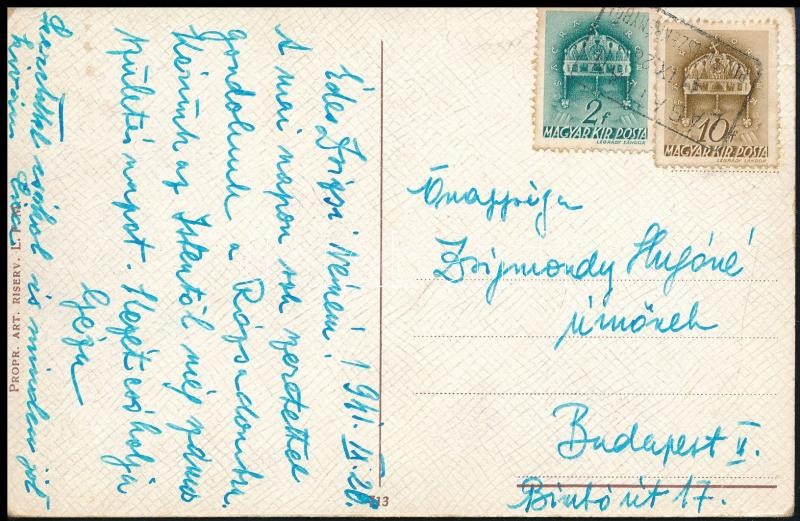 Édes Zsigsi Néném! 1941. IX. 20.
A mai napon sok szeretettel
gondolunk a Rózsadombra.
Kérünk az Istentől még számos
születés napot. Kezét csókolja
Géza
Szeretettel csókol és minden jót
kíván
PROPR. ART. RISERV. L.
13
2f
MAGYAR KIR. POSTA
LÉGRÁDY SÁNDOR
10f
MAGYAR KIR. POSTA
LÉGRÁDY SÁNDOR
Őnagysága
Zsigmondy Hugóné
úrnőnek
Budapest II.
Bimbó út 17.